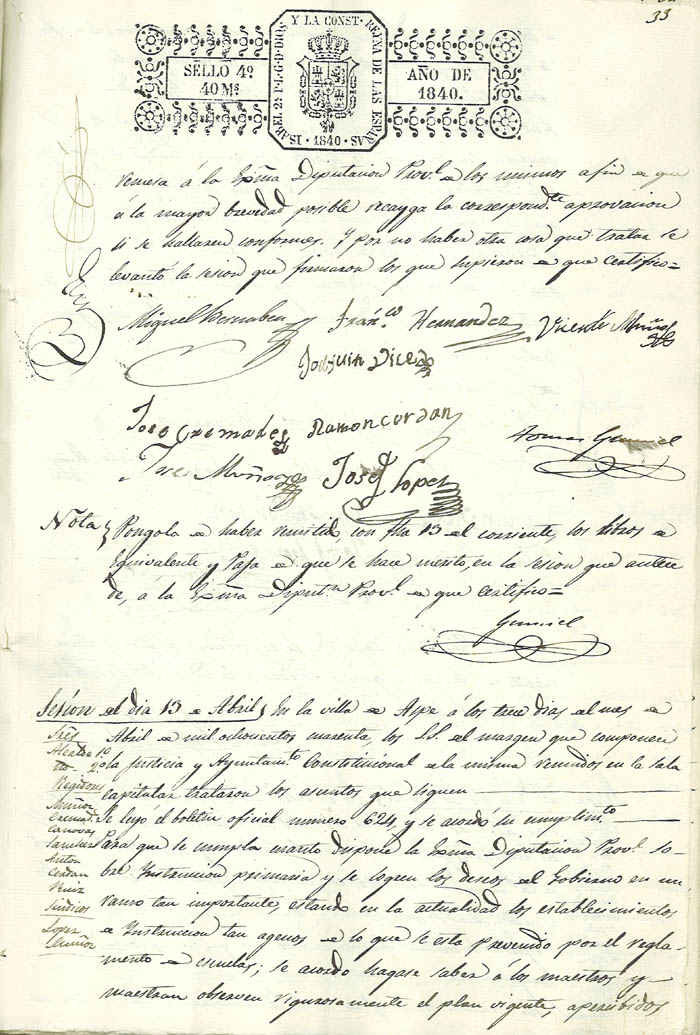 33
SELLO 4º
40 Ms
ISABEL 2ª P.L.G.D.DIOS Y LA CONST. REYNA DE LAS ESPAÑAS
1840
AÑO DE
1840.
remesa á la Exma Diputacion Provl. a los mismos afin a que
á la mayor brevedad posible recayga la correspondte aprovacion
si se hallaren conformes. Y por no haber otra cosa que tratar se
levantó la sesion que firmaron los que supieron a que certifico=
Miguel Bernabeu Franco Hernandez Vicente Muñoz
Joaquin Vicedo
Jose Cremades Ramon cerdan
Tomas Gumiel
Jose Muñoz Josef Lopez
Nota Pongola a haber remitido, con fha 13 al corriente, los libros a
Equivalente y Paja a que se hace merito, en la sesion que antece
de, a la Exma Diputn Provl. a que certifico=
Gumiel
Sesion el dia 13 a Abril, En la villa a Aspe á los trece dias al mes a
Sres
Abril a mil ochosientos cuarenta, los S.S. al margen que componen
Alcalde 1º
Yd. 2º
la Justicia y Ayuntamto Constitucional a la misma reunidos en la sala
Regidores
capitular trataron los asuntos que siguen
Muñoz
Se leyó el boletin oficial numero 624, y se acordo su cumplimto
Cremads
Canovas
Para que se cumpla cuanto dispone la Exma Diputacion Provl. so-
Sanchez
Anton
bre Instruccion primaria y se logren los deseos al Gobierno en un
Cerdan
ramo tan importante, estando en la actualidad los establecimientos
Ruiz
Sindicos
a Instruccion tan agenos a lo que se esta prevenido por el regla-
Lopez
Muñoz
mento a escuelas; se acordo hagase saber á los maestros y
maestras observen vigurosamente el plan vigente, apercibidos